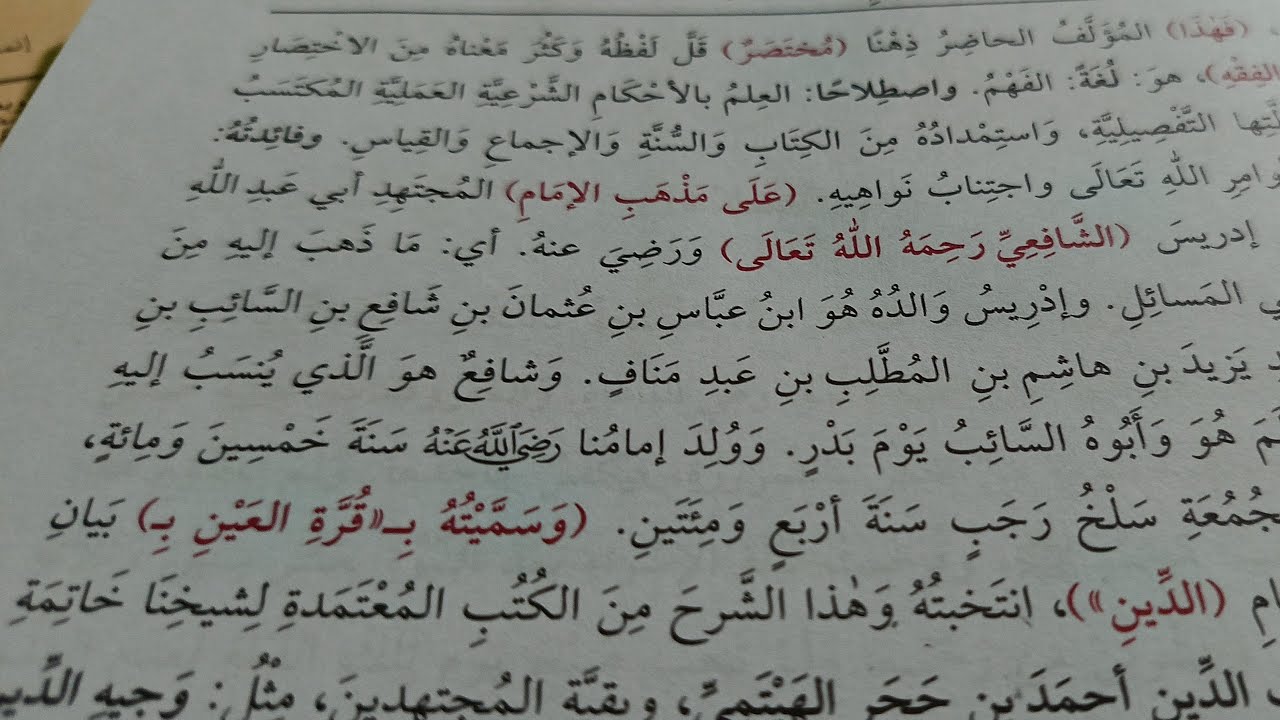 (فَهٰذَا) المُؤَلَّفُ الحاضِرُ ذِهْنًا (مُختَصَرٌ) قَلَّ لَفْظُهُ وَكَثُرَ مَعْناهُ مِنَ الاخْتِصَارِ
الفِقْهِ)، هوَ: لُغَةً: الفَهْمُ. واصطِلاحًا: العِلمُ بالأحْكامِ الشَّرْعِيَّةِ العَمَلِيَّةِ المُكتَسَبُ
التَّفْصِيلِيَّةِ، وَاستِمْدادُهُ مِنَ الكِتَابِ وَالسُّنَّةِ وَالإجماعِ وَالقِياسِ. وفائِدتُهُ:
اللهِ تَعَالَى واجتِنابُ نَواهِيهِ. (عَلَى مَذْهَبِ الإمَامِ) المُجتَهِدِ أبي عَبدِ اللهِ
إدريسَ (الشَّافِعِيِّ رَحِمَهُ اللهُ تَعَالَى) وَرَضِيَ عنهُ. أي: مَا ذَهبَ إليهِ مِنَ
المَسائِلِ. وإدْرِيسُ وَالدُهُ هُوَ ابنُ عبَّاسِ بنِ عُثمانَ بنِ شَافعِ بنِ السَّائِبِ بنِ
يَزِيدَ بنِ هاشِمِ بنِ المُطَّلِبِ بنِ عَبدِ مَنَافٍ. وَشافِعٌ هوَ الَّذي يُنسَبُ إليهِ
هُوَ وَأَبُوهُ السَّائِبُ يَوْمَ بَدْرٍ. وَوُلِدَ إمامُنا رَضِيَ اللَّهُ عَنْهُ سَنَةَ خَمْسِينَ وَمِائةٍ،
سَلْخُ رَجَبٍ سَنَةَ أرْبَعٍ وَمِئَتَينِ. (وَسَمَّيْتُهُ بِـ«قُرَّةِ العَيْنِ بِـ) بَيانِ
(الدِّينِ»)، انتَخبتهُ وَهٰذا الشَّرحَ مِنَ الكُتُبِ المُعْتَمَدةِ لِشيخِنَا خَاتِمَةِ
الدِّينِ أحمَدَ بنِ حَجَرٍ الهَيْتَمِيِّ، وبقيَّة المُجتهدينَ، مِثْلُ: وَجيهِ الدِّينِ